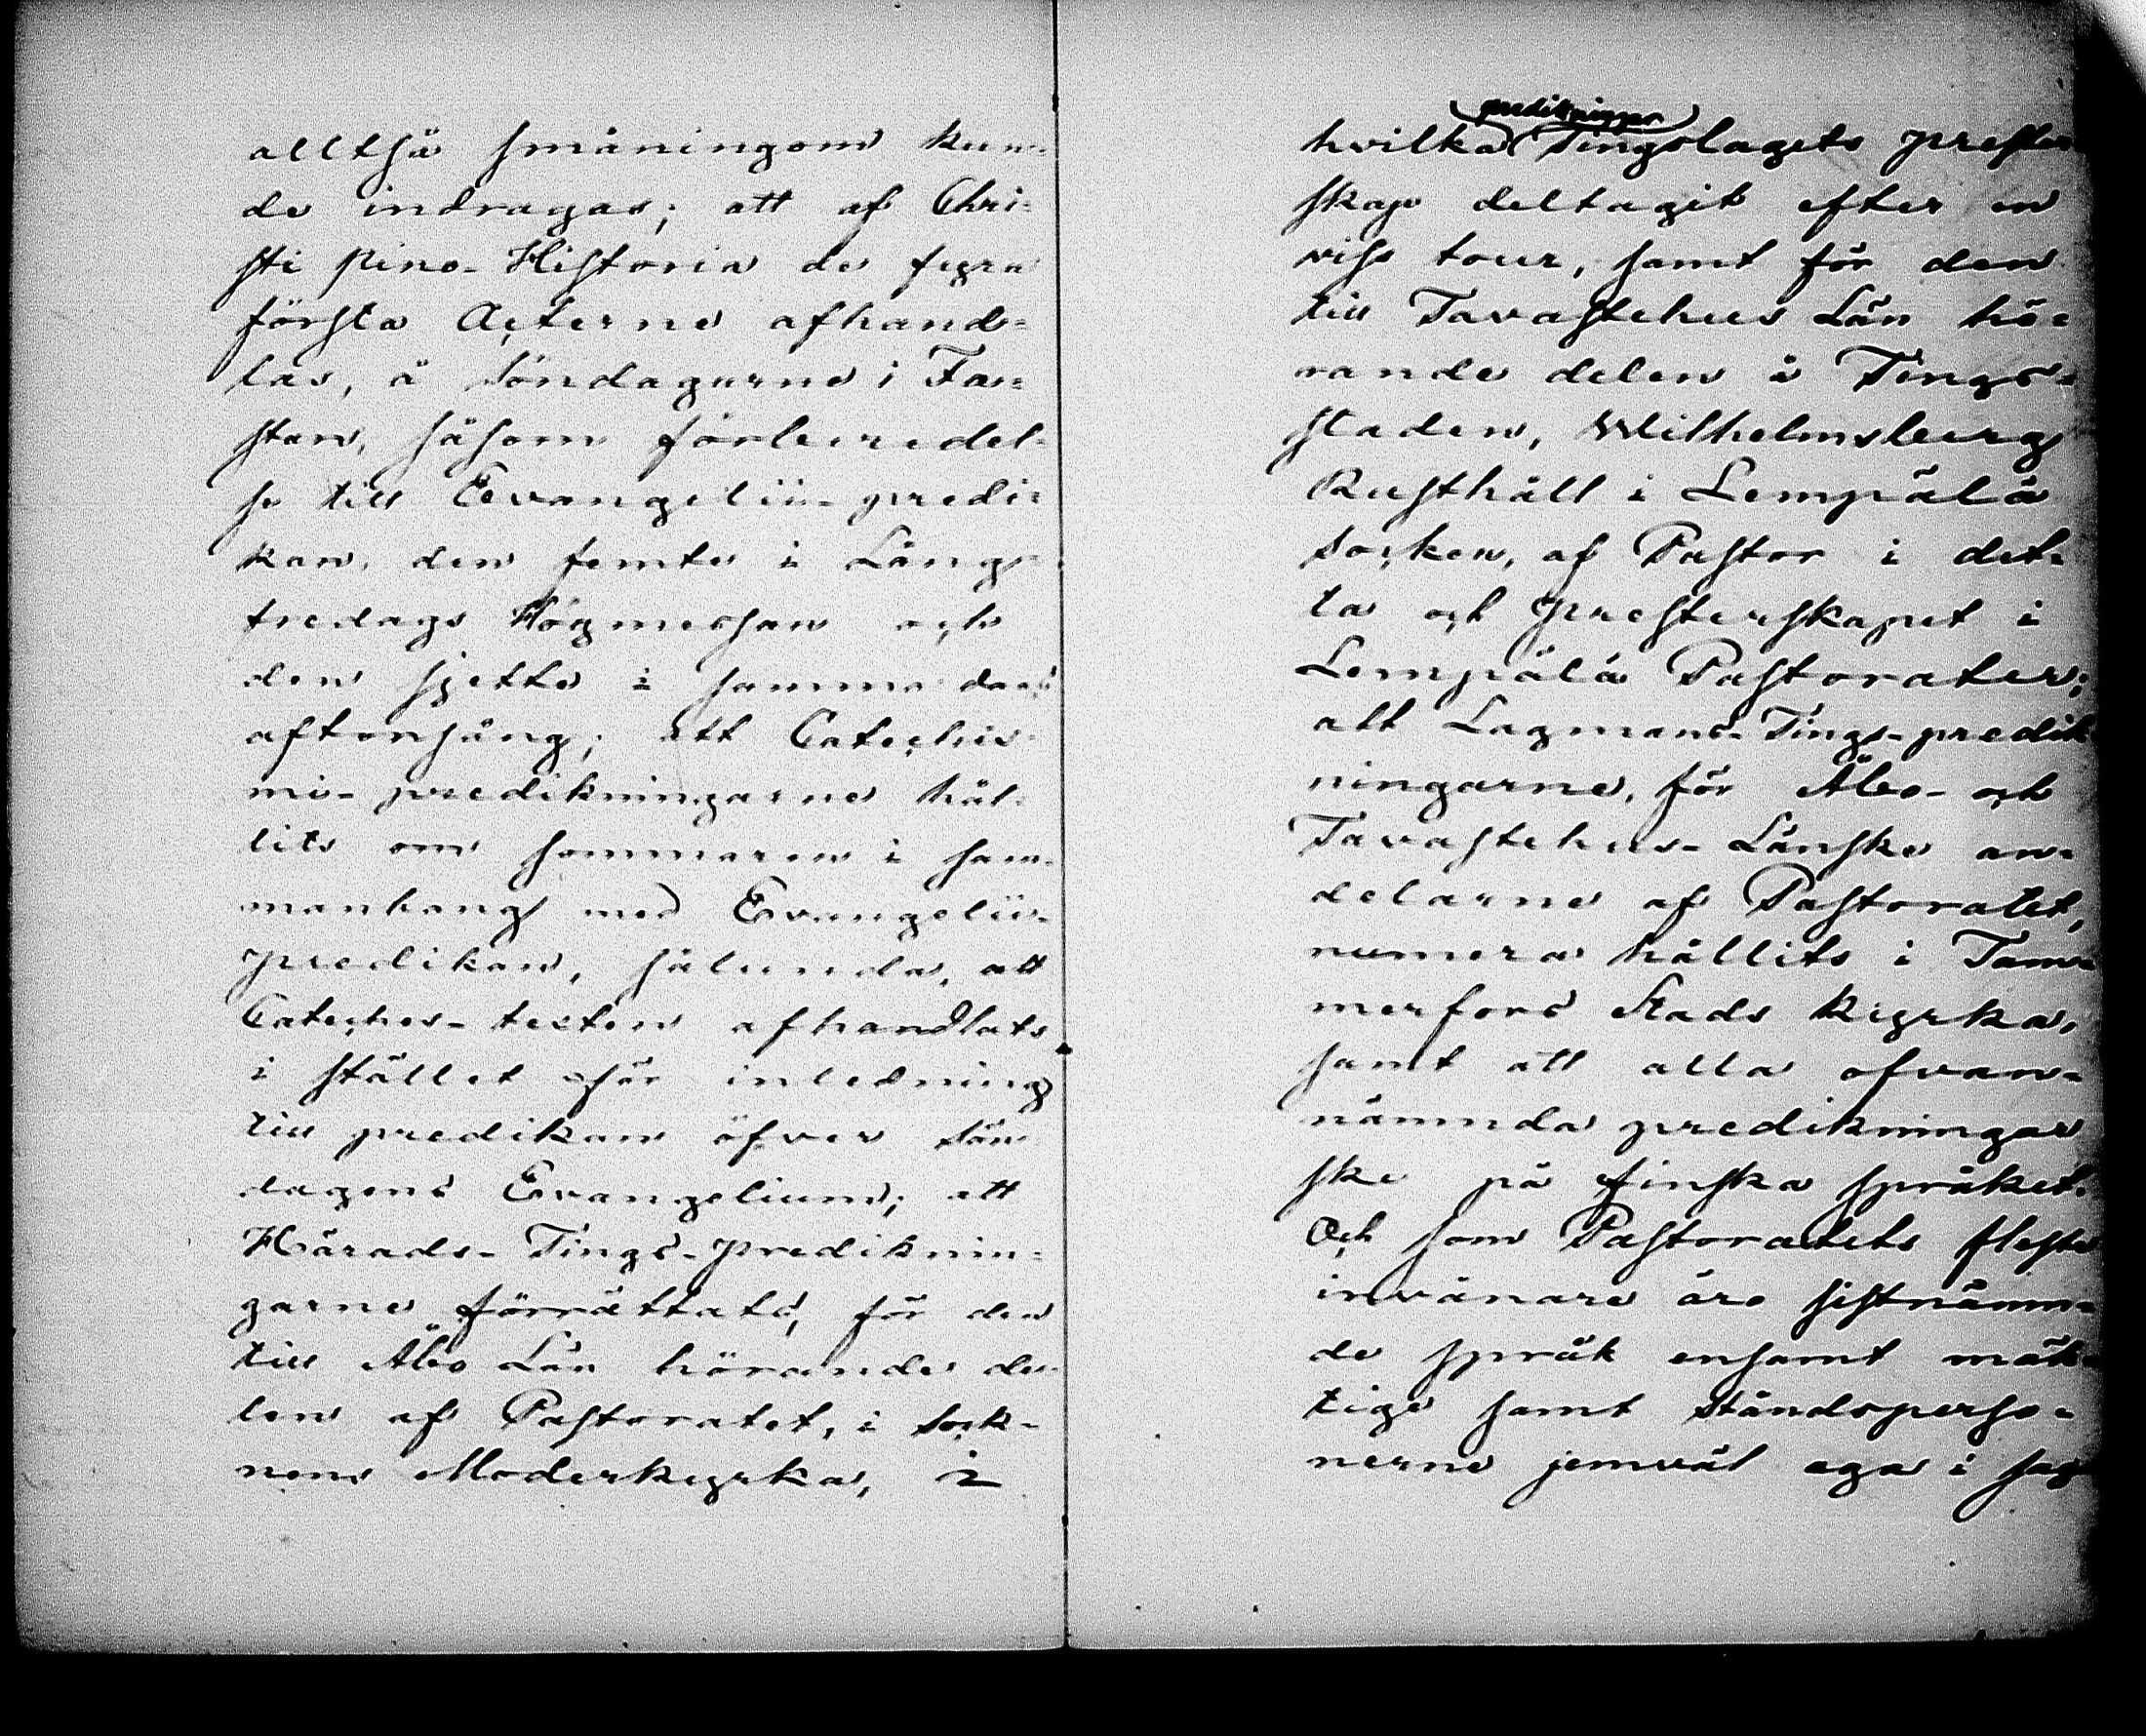 alltså småningom kun-
de indragas; att af Chri-
sti pino-Historia de fyra
första Acterne afhand-
las, å Söndagarne i Fa-
stan, såsom förberedel-
se till Evangelii-predi-
kan, den femte i Lång-
fredags Högmessan och
den sjette i samma dags
aftonsång; att Cateches-
mi-predikningarne hål-
lits om sommaren i sam-
manhang med Evangelii-
predikan, sålunda, att
Cateches-texten afhandlats
i stället för inledning
till predikan öfver Sön-
dagens Evangelium; att
Härads-Tings-prediknin-
garne förrättats, för den
till Åbo Län hörande de-
len af Pastoratet, i Sock-
nens Moderkyrka, i
predikningar
hvilka Tingslagets prester-
skap deltagit efter en
viss tour, samt för den
till Tavastehus Län hö-
rande delen å Tings-
staden, Wilhelmsberg
Rusthåll i Lempälä
Socken, af Pastor i det-
ta och presterskapet i
Lempälä Pastorater;
att Lagmans-Tings-predik
ningarne, för Åbo- och
Tavastehus-Länske an-
delarne af Pastoratet,
numera hållits i Tam-
merfors Stads kyrka,
samt att alla ofvan-
nämnda predikningar
ske på finska språket.
Och som Pastoratets fleste
invånare äro sistnämn-
de språk ensamt mäk-
tige samt ståndsperso-
nerne jemväl ega i sag